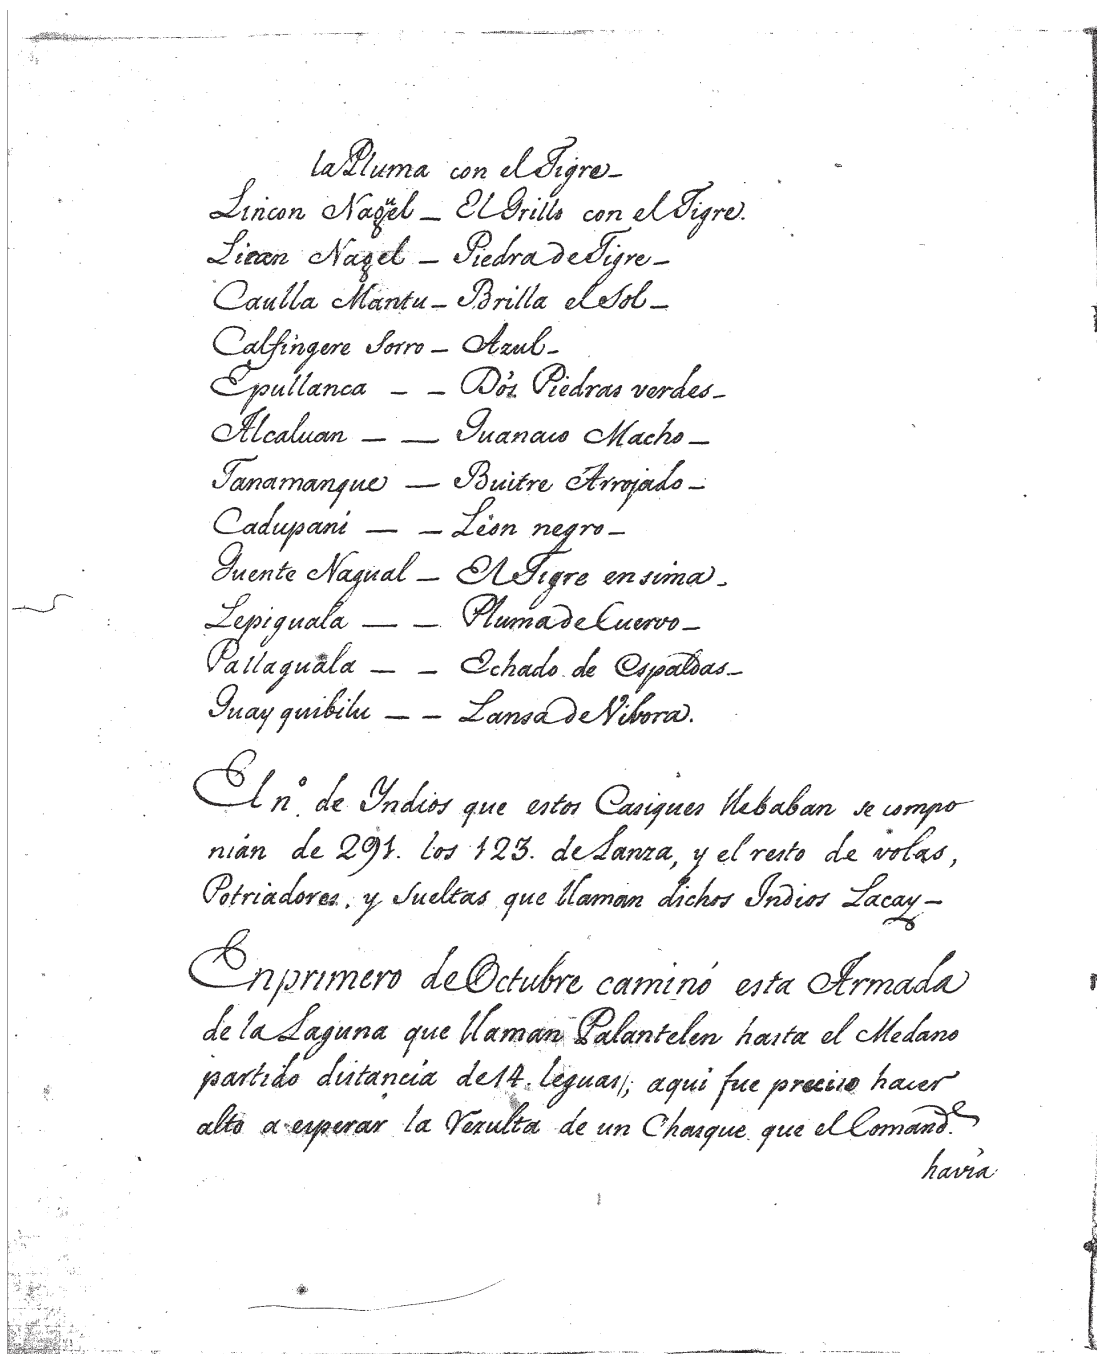 la Pluma con el Tigre_
Lincon Naqüel _ El Grillo con el Tigre.
Lican Naqel _ Piedra de Tigre_
Caulla Mantu _ Brilla el Sol _
Calfingere Sorro _ Azul_
Epullanca _ _ Dós Piedras verdes_
Alcaluan _ _ Guanaco Macho _
Tanamanque _ Buitre Arrojado _
Cadupani _ _ Léon negro _
Guente Nagual _ El Tigre ensima _
Lepiguala _ _ Pluma de Cuervo _
Pallaguala _ _ Echado de Espaldas _
Guay quibilu _ _ Lansa de Vibora.
El nº. de Yndios que estos Casiques llebaban se compo
nián de 291. los 123. de Lanza, y el resto de volas,
Potriadores, y Sueltas que llaman dichos Indios Lacay _
En primero de Octubre caminó esta Armada
de la Laguna que llaman Palantelen hasta el Medano
partido distancia de 14. leguas; aqui fue preciso hacer
alto a esperar la Rezulta de un Chasque que el Comand.e
havia